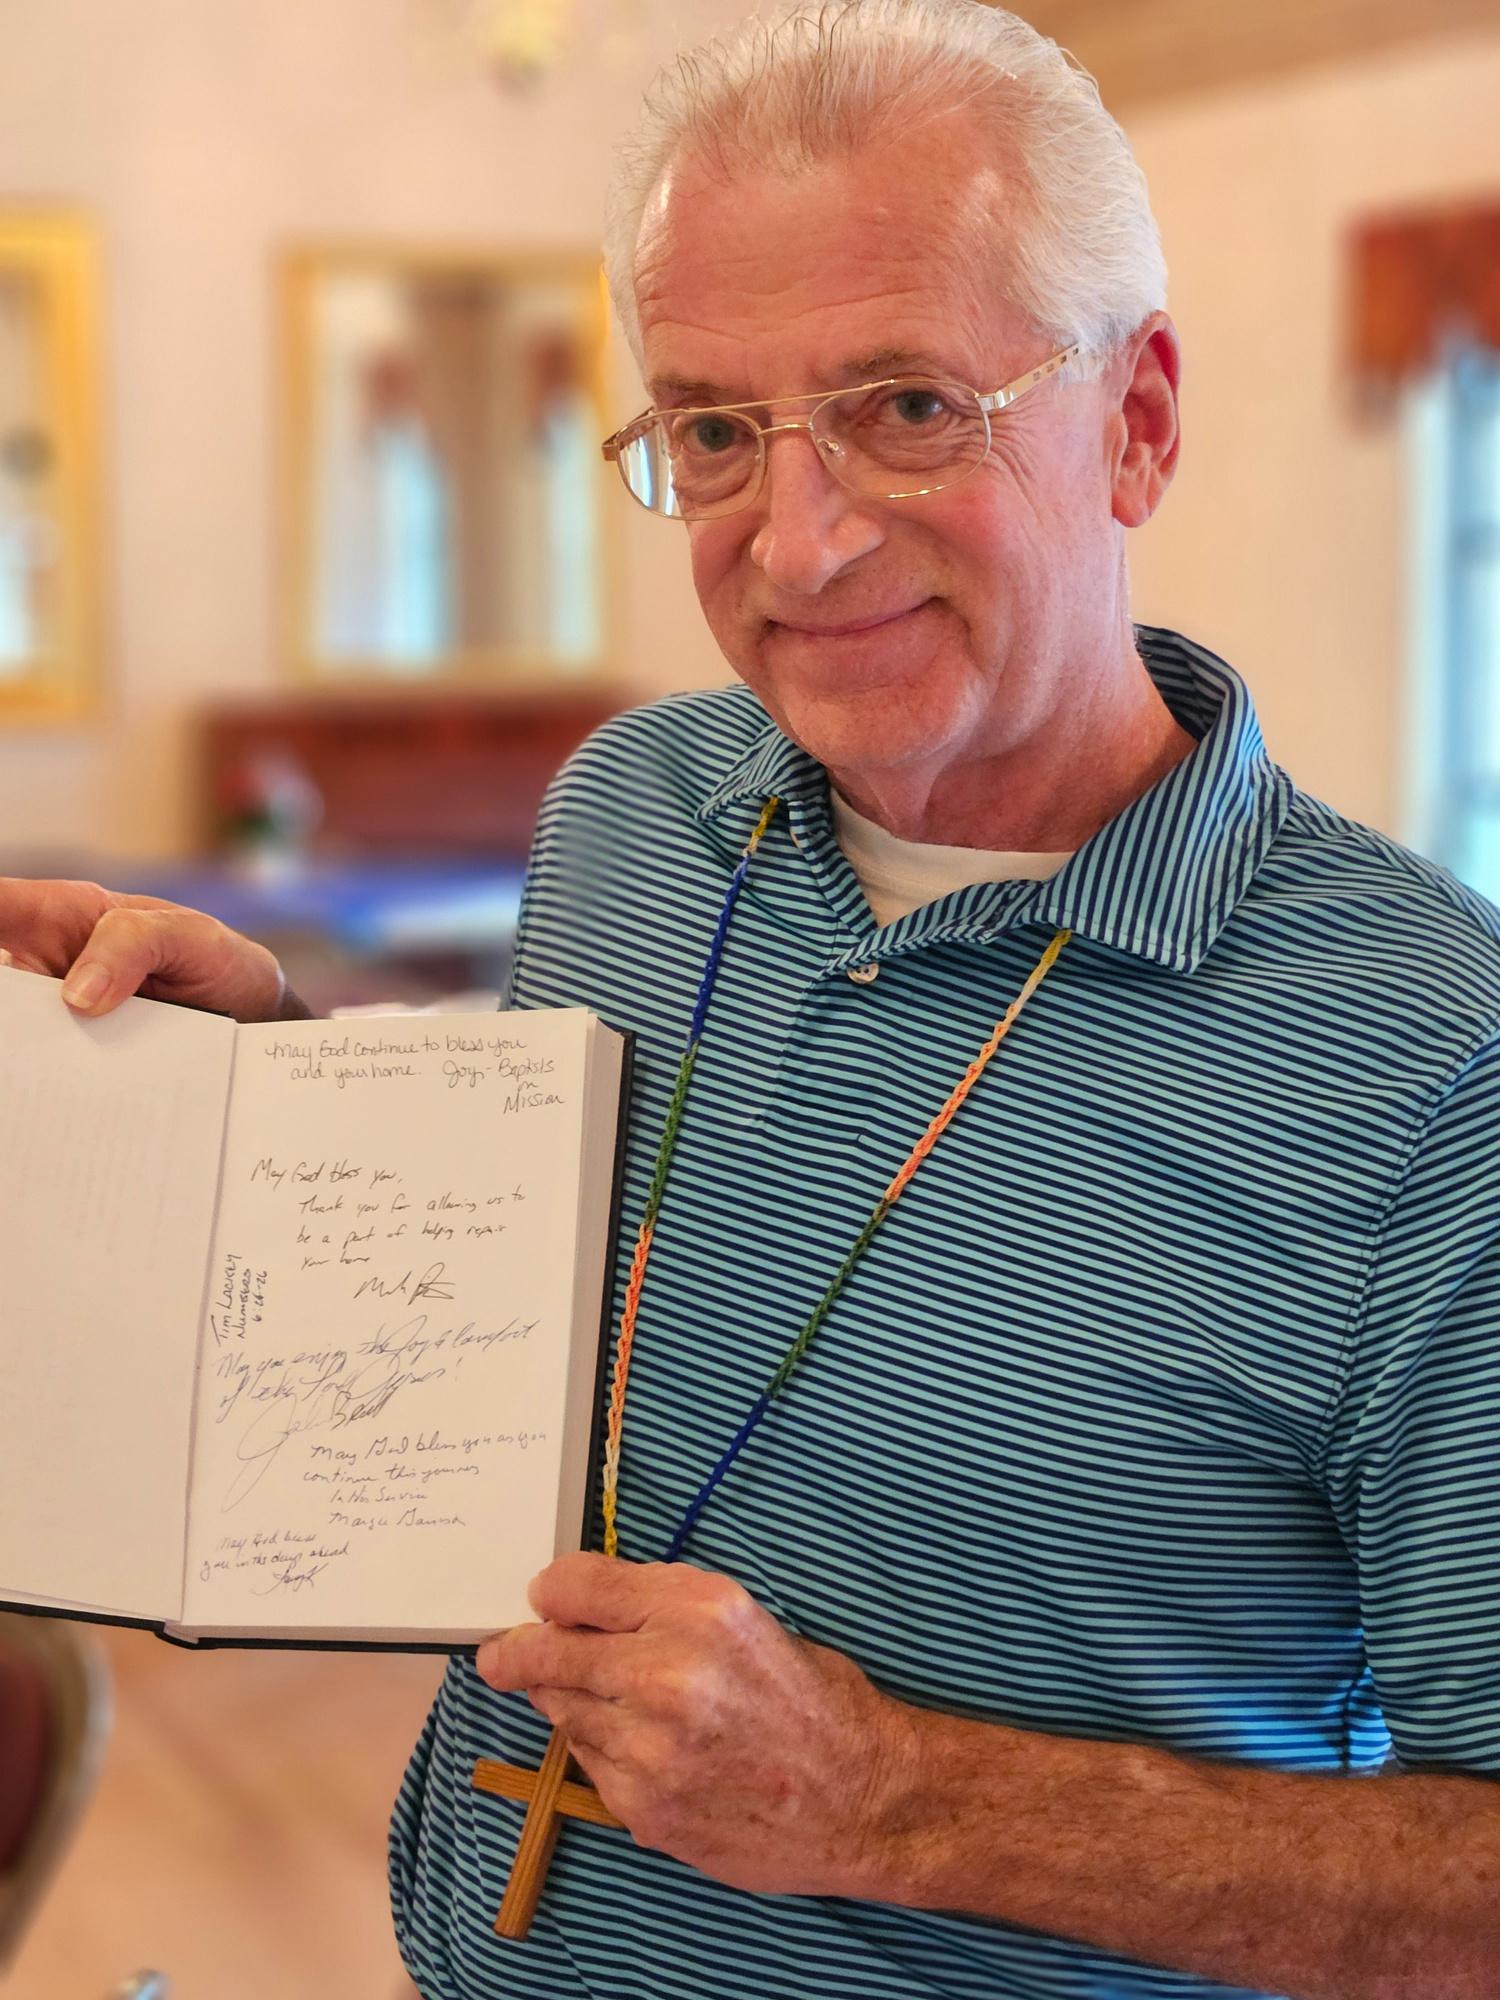 May God continue to bless you
and your home. Joy - Baptists
on
Mission
May God bless you,
Thank you for allowing us to
be a part of helping repair
your home
TIM LACKEY
NUMBERS
6:24-26
May you enjoy the Joy & Comfort
of the Lord Jesus!
May God bless you as you
continue this journey
In His Service
Margie
May God bless
you in the days ahead